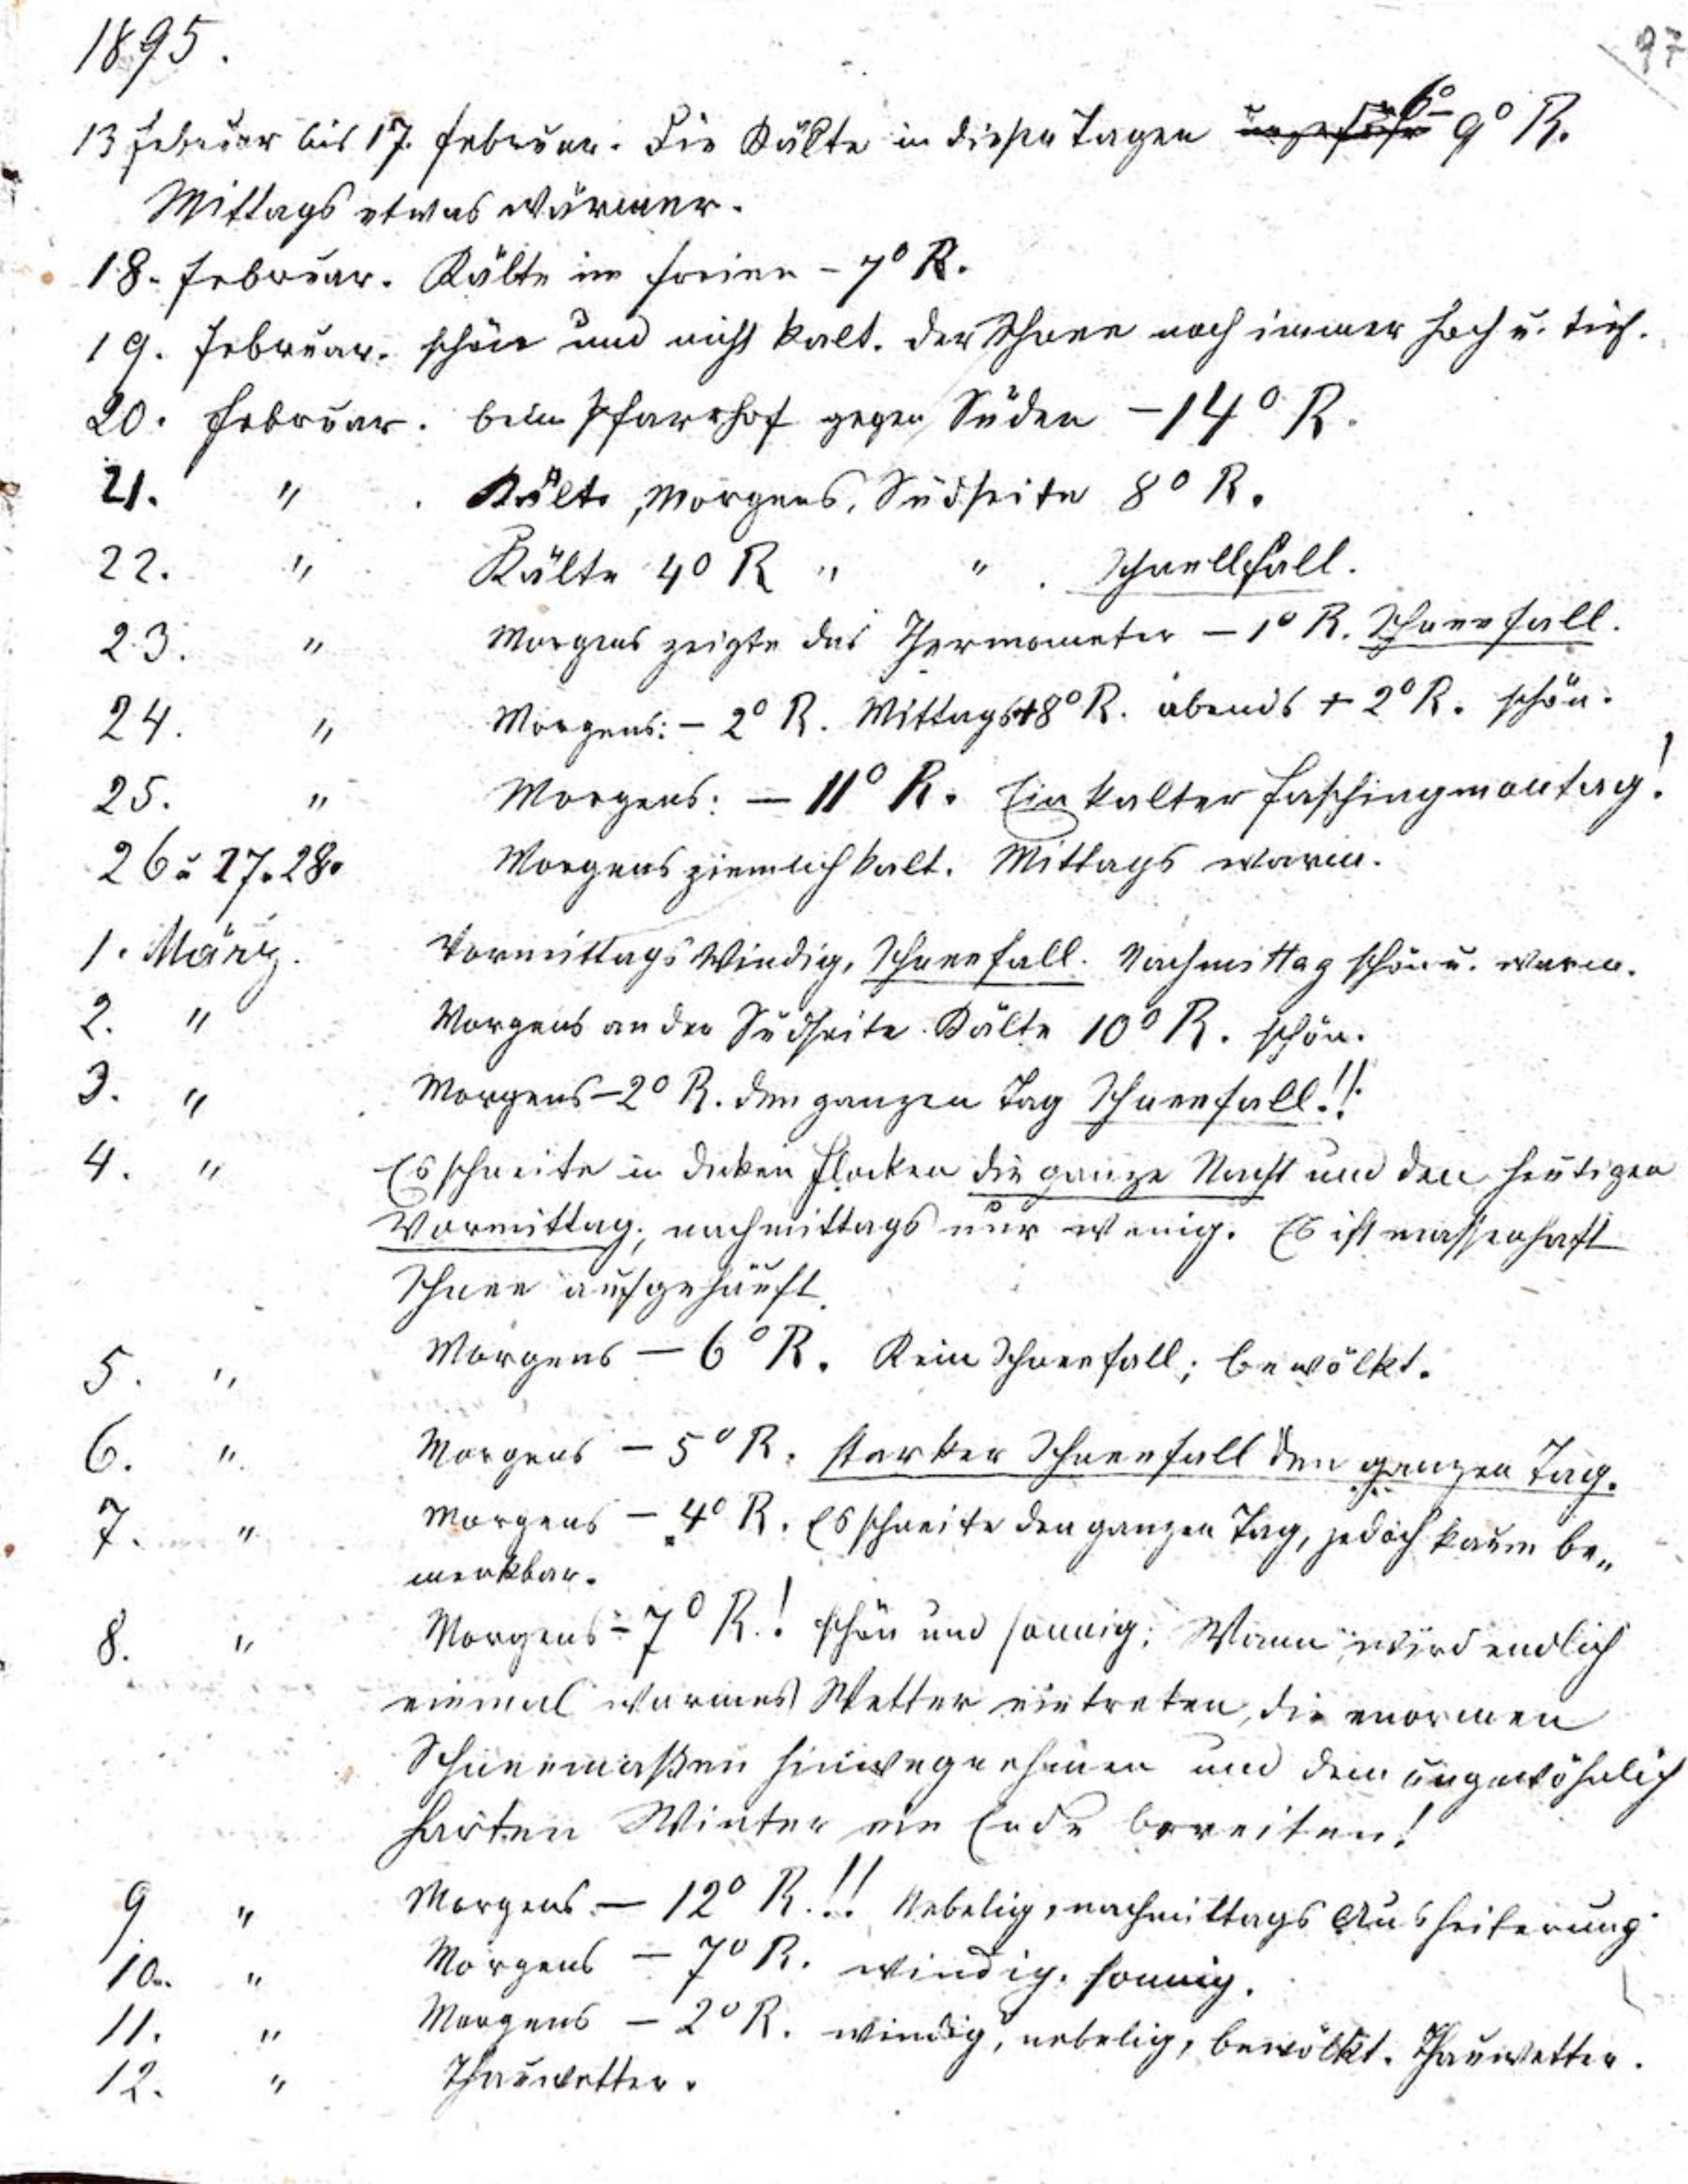 1895.
97
13 Februar bis 17. Februar. Die Kälte in diesen Tagen ungefähr 6° 9° R.
Mittags etwas wärmer.
18. Februar. Kälte im Freien - 7° R.
19. Februar. schön und nicht kalt. der Schnee noch immer hoch u. tief.
20. Februar. beim Pfarrhof gegen Süden - 14° R.
21. " . Kälte, Morgens, Südseite 8° R.
22. " Kälte 4° R " " . Schnellfall.
23. " Morgens zeigte das Thermometer - 1° R. Schneefall.
24. " Morgens: - 2° R. Mittags +8° R. abends + 2° R. schön.
25. " Morgens: - 11° R. Ein kalter Faschingmontag!
26 u 27. 28. Morgens ziemlich kalt. Mittags warm.
1. März. Vormittags windig, Schneefall. Nachmittag schön u. warm.
2. " Morgens an der Südseite Kälte 10° R. schön.
3. " Morgens -2° R. den ganzen Tag Schneefall!!
4. " Es schneite in dicken Flocken die ganze Nacht und den heutigen
Vormittag; nachmittags nur wenig. Es ist massenhaft
Schnee aufgehäuft.
5. " Morgens - 6° R. Kein Schneefall; bewölkt.
6. " Morgens - 5° R. starker Schneefall den ganzen Tag.
7. " Morgens - 4° R. Es schneite den ganzen Tag, jedoch kaum be„
merkbar.
8. " Morgens - 7° R.! schön und sonnig; Wann wird endlich
einmal warmes Wetter eintreten, die enormen
Schneemaßen hinwegnehmen und dem ungewöhnlich
harten Winter ein Ende bereiten!
9 " Morgens - 12° R.!! Nebelig, nachmittags Ausheiterung.
10. " Morgens - 7° R. windig. sonnig.
11. " Morgens - 2° R. windig, nebelig, bewölkt. Thauwetter.
12. " Thauwetter.